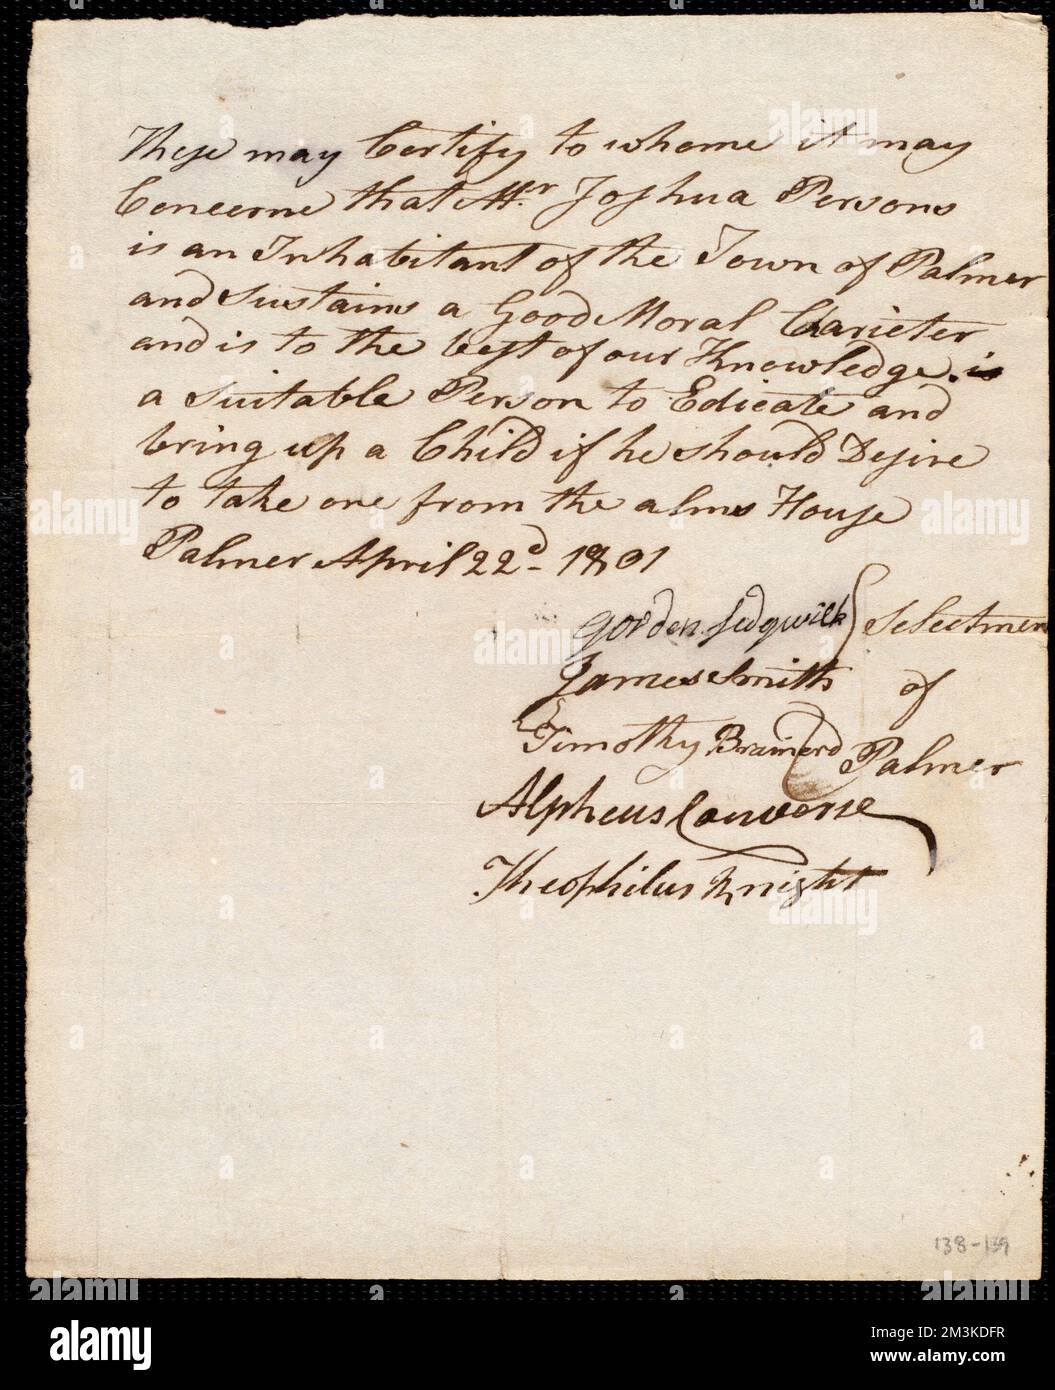 These may Certify to whome it may
Concerne that Mr. Joshua Persons
is an Inhabitant of the Town of Palmer
and sustains a Good Moral Charicter
and is to the best of our Knowledge. is
a suitable Person to Edicate and
bring up a Child if he should Desire
to take one from the alms House
Palmer April 22d - 1801
Gorden Sedgwick } Selectmen
James Smith of
Timothy Brainerd Palmer
Alpheus Converse
Theophilus Knight
138-139
alamy
Image ID: 2M3KDFR
www.alamy.com